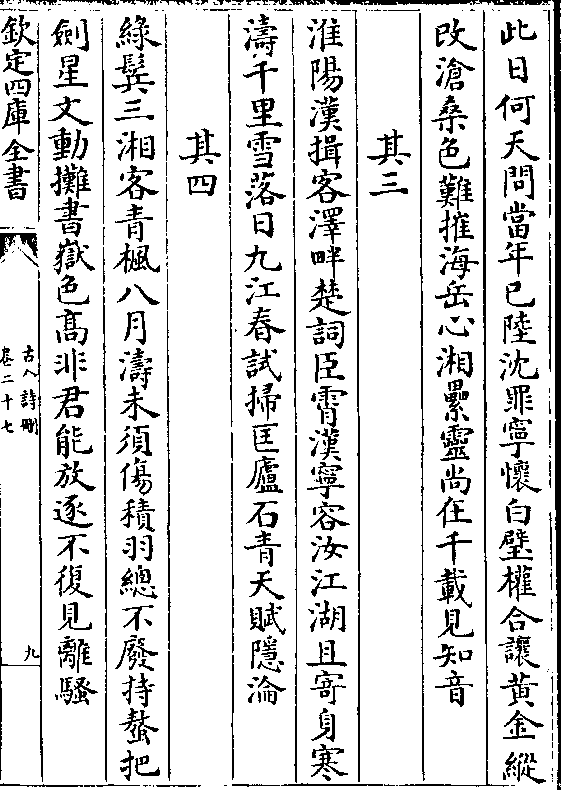 此日何天問當年已陸沈罪寧懷白璧權合讓黃金縱
改滄桑色難摧海岳心湘纍靈尚在千載見知音
其三
淮陽漢揖客澤畔楚詞臣霄漢寧容汝江湖且寄身寒
濤千里雪落日九江春試掃匡廬石青天賦隱淪
其四
綠鬂三湘客青楓八月濤未須傷積羽總不廢持螯把
劍星文動攤書嶽色髙非君能放逐不復見離騷
欽定四庫全書
古今詩刪
卷二十七
九